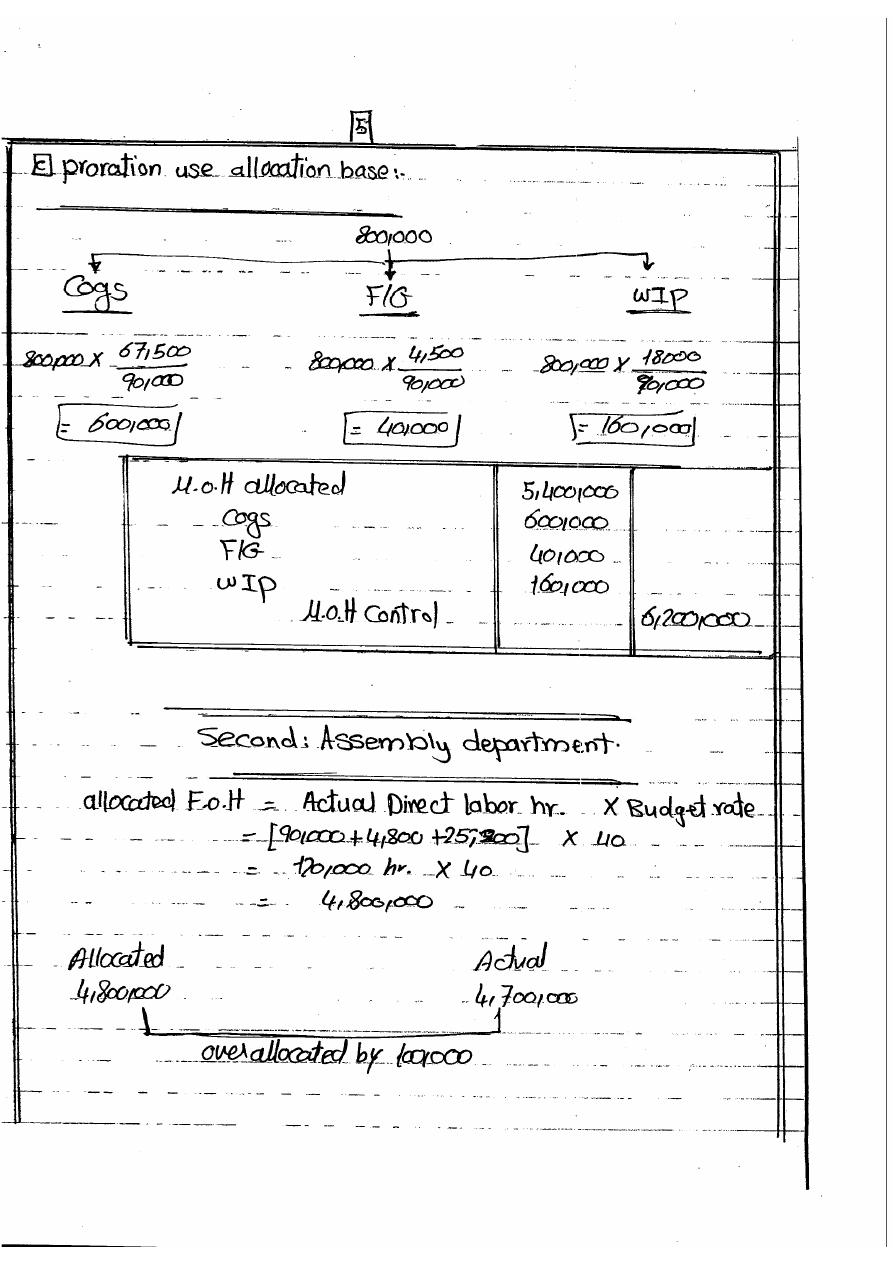 5
C proration use allocation base:-
800,000
Cogs F/G WIP
800,000 X 67,500/90,000 800,000 X 4,500/90,000 800,000 X 18000/90,000
= 600,000 = 40,000 = 160,000
M.O.H allocated 5,400,000
Cogs 600,000
F/G 40,000
WIP 160,000
M.O.H Control 6,200,000
Second: Assembly department.
allocated F.O.H = Actual Direct labor hr. X Budget rate
= [90,000 + 4,800 + 25,200] X 40
= 120,000 hr. X 40
= 4,800,000
Allocated Actual
4,800,000 4,700,000
overallocated by 100,000